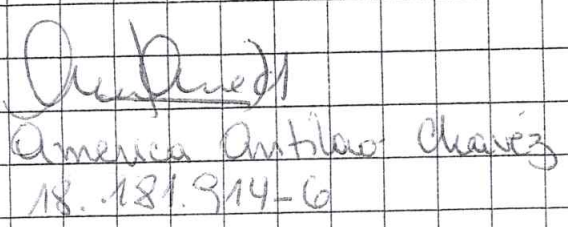 America Antilao Chavéz
18.181.914-6